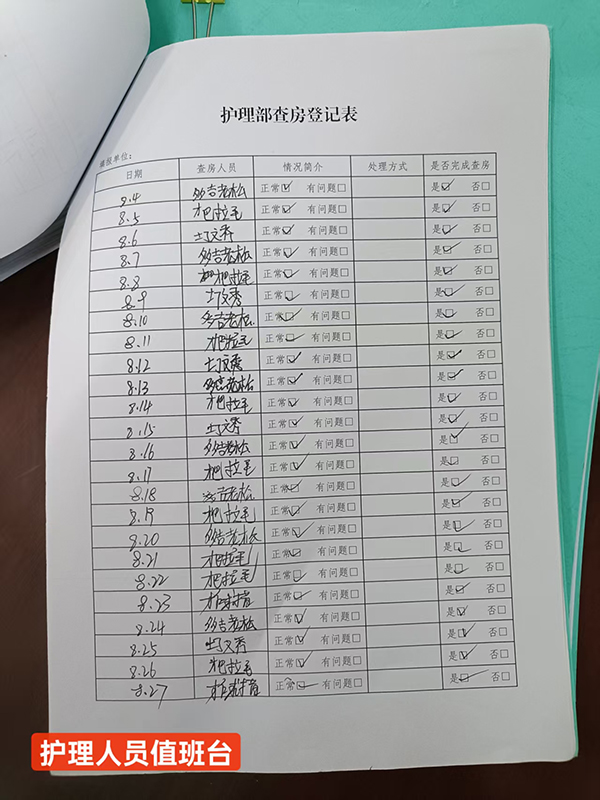 护理部查房登记表
填报单位：
日期 查房人员 情况简介 处理方式 是否完成查房
8.4 多吉老松 正常☑ 有问题□ 是☑ 否□
8.5 才巴拉毛 正常☑ 有问题□ 是☑ 否□
8.6 文秀 正常☑ 有问题□ 是☑ 否□
8.7 多吉老松 正常☑ 有问题□ 是☑ 否□
8.8 才巴拉毛 正常☑ 有问题□ 是☑ 否□
8.9 文秀 正常☑ 有问题□ 是☑ 否□
8.10 多吉老松 正常☑ 有问题□ 是☑ 否□
8.11 才巴拉毛 正常☑ 有问题□ 是☑ 否□
8.12 文秀 正常☑ 有问题□ 是☑ 否□
8.13 多吉老松 正常☑ 有问题□ 是☑ 否□
8.14 才巴拉毛 正常☑ 有问题□ 是☑ 否□
8.15 文秀 正常☑ 有问题□ 是☑ 否□
8.16 多吉老松 正常☑ 有问题□ 是☑ 否□
8.17 才巴拉毛 正常☑ 有问题□ 是☑ 否□
8.18 多吉老松 正常☑ 有问题□ 是☑ 否□
8.19 才巴拉毛 正常☑ 有问题□ 是☑ 否□
8.20 多吉老松 正常☑ 有问题□ 是☑ 否□
8.21 才巴拉毛 正常☑ 有问题□ 是☑ 否□
8.22 才巴拉毛 正常☑ 有问题□ 是☑ 否□
8.23 正常☑ 有问题□ 是☑ 否□
8.24 多吉老松 正常☑ 有问题□ 是☑ 否□
8.25 文秀 正常☑ 有问题□ 是☑ 否□
8.26 才巴拉毛 正常☑ 有问题□ 是☑ 否□
8.27 正常☑ 有问题□ 是☑ 否□
护理人员值班台